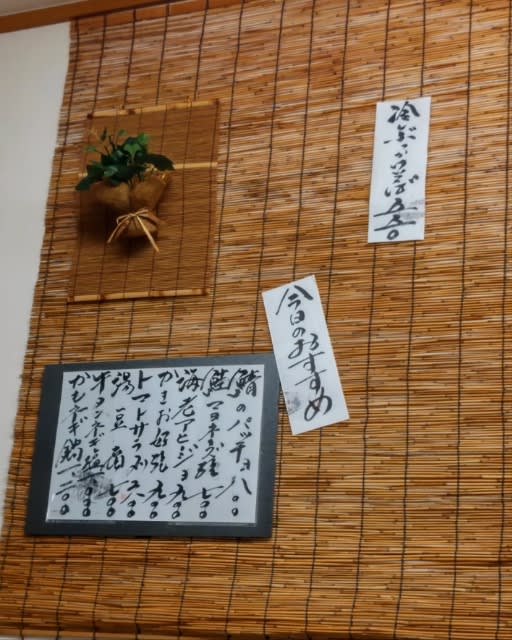 冷ぶっかけそば 五五〇
今日のおすすめ
のパッチョ 八〇〇
鮭マヨネーズ焼 七〇〇
海老アヒージョ 九〇〇
かきお好み焼 九〇〇
トマトサラダ 六〇〇
湯豆腐 七〇〇
牛タンネギ塩 九〇〇
かもネギ鍋 一二〇〇